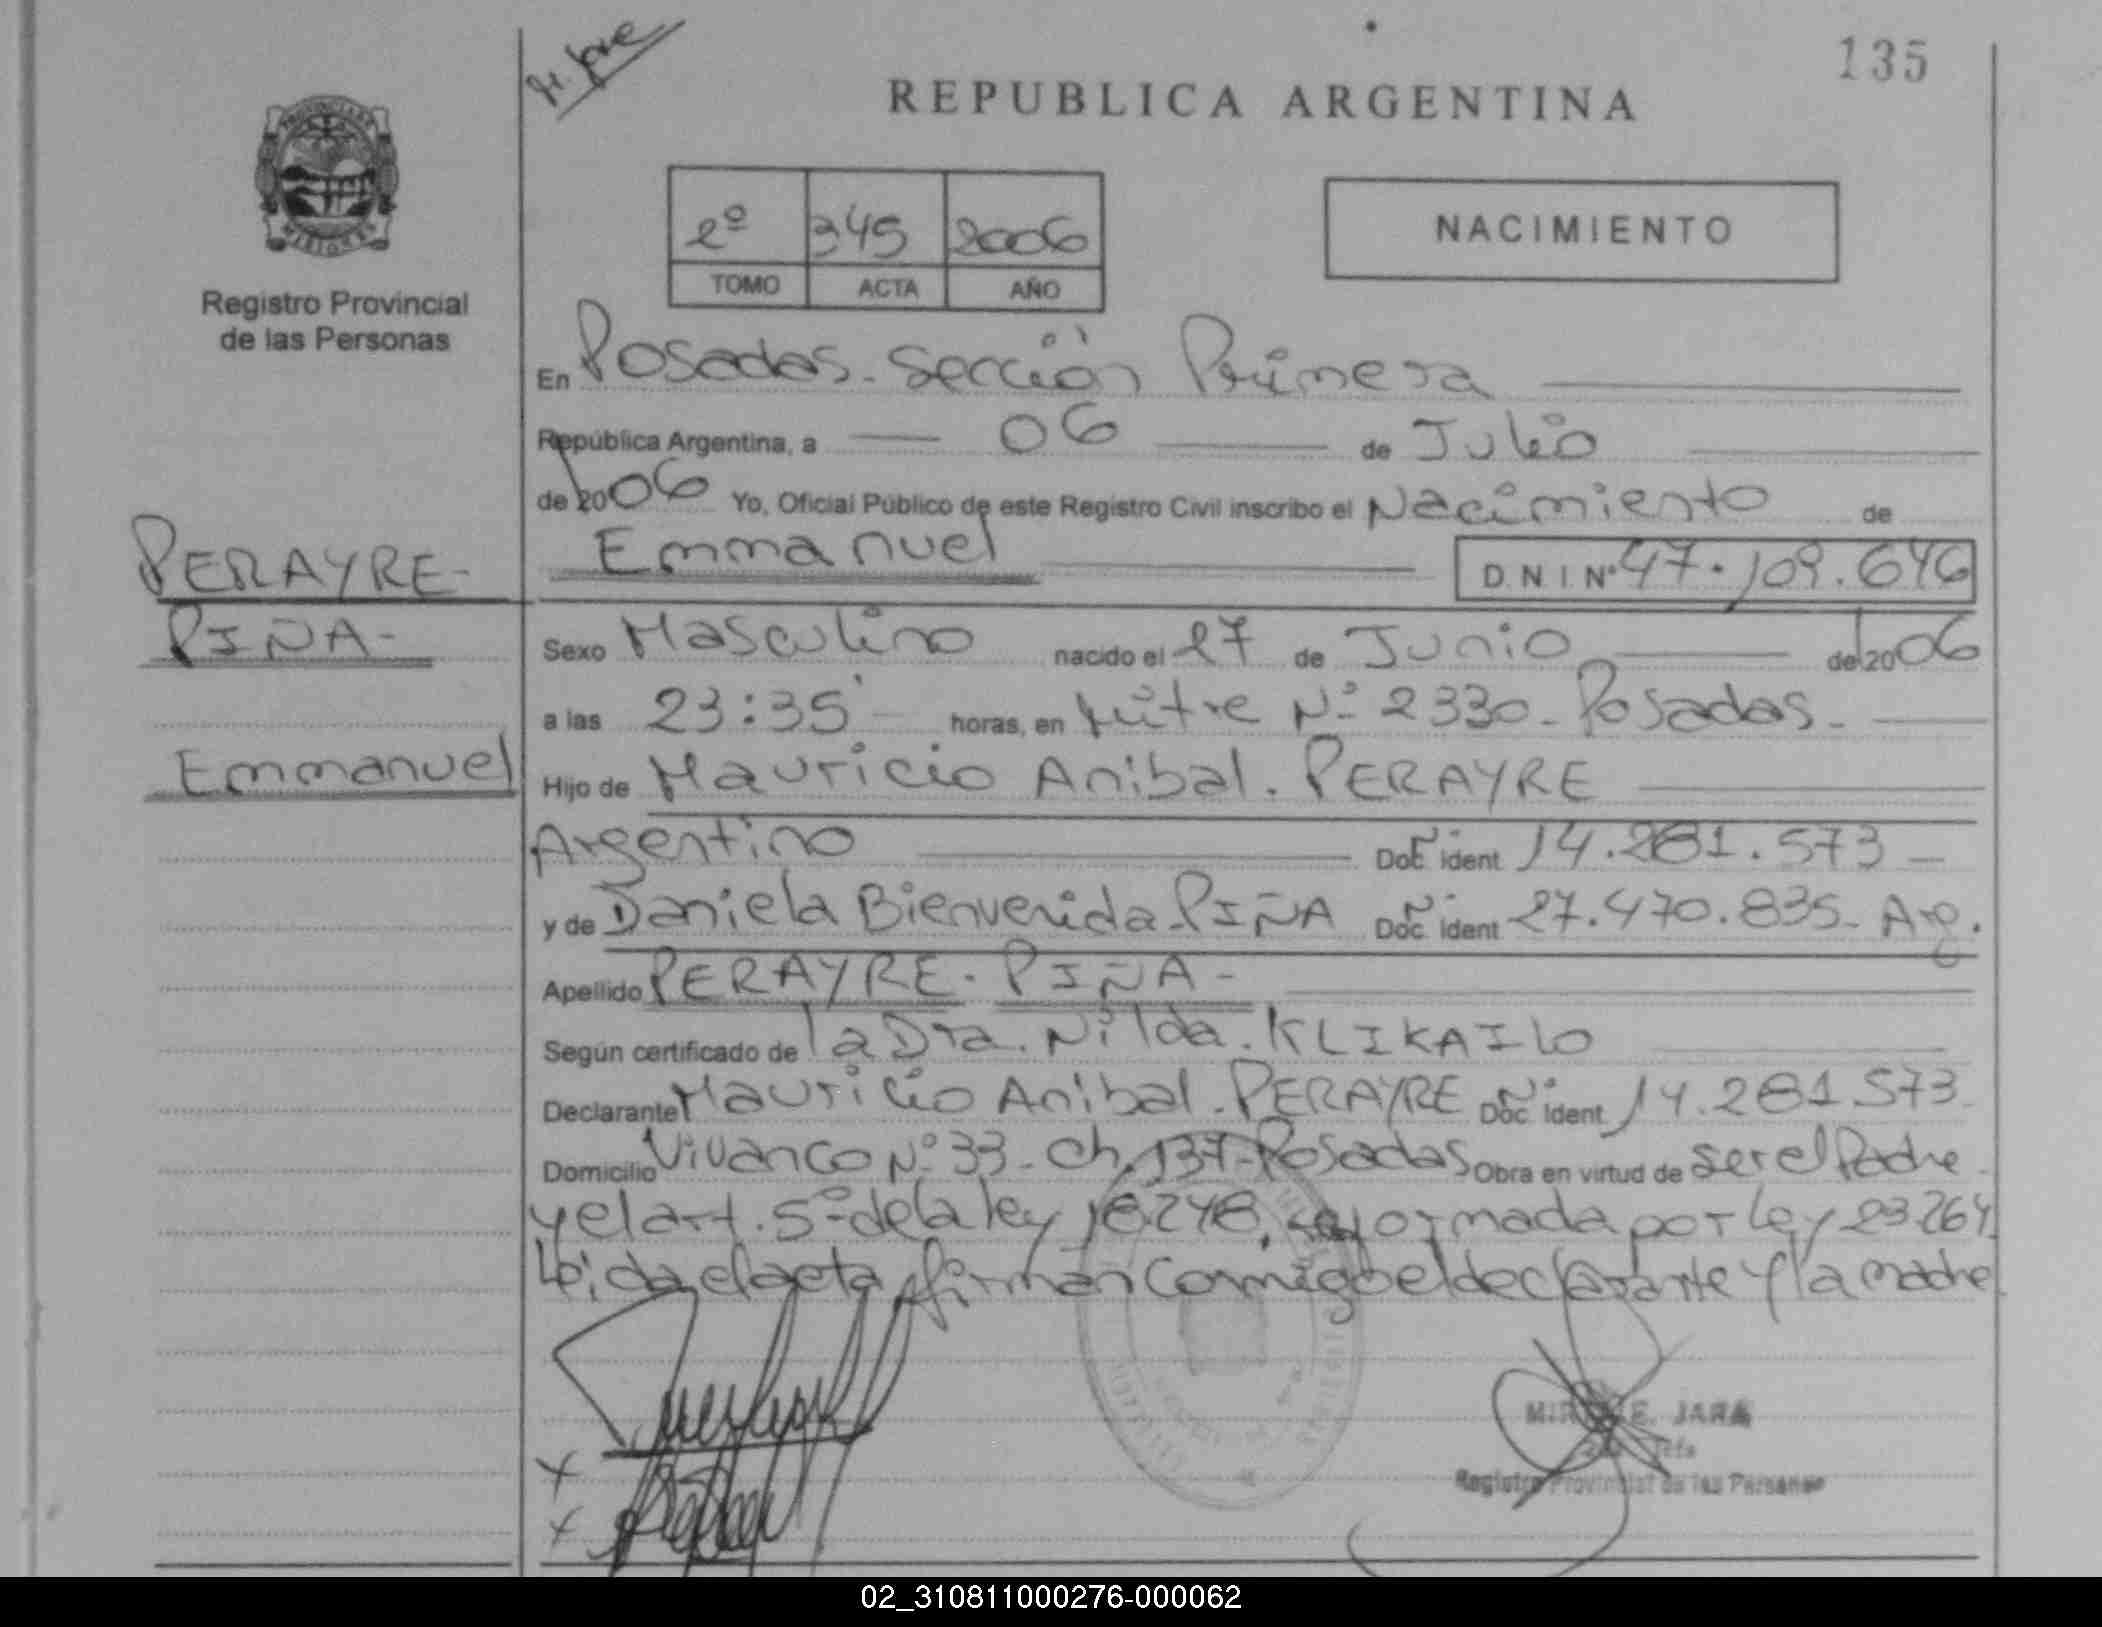 135
REPUBLICA ARGENTINA
2º 345 2006
TOMO ACTA AÑO
NACIMIENTO
Registro Provincial
de las Personas
En Posadas - Sección Primera
República Argentina, a 06 de Julio
de 2006 Yo, Oficial Público de este Registro Civil inscribo el Nacimiento de
Emmanuel D.N.I. Nº 47.109.646
PERAYRE-
PIÑA-
Emmanuel
Sexo Masculino nacido el 27 de Junio de 2006
a las 23:35 horas, en Mitre Nº 2330 - Posadas -
Hijo de Mauricio Anibal. PERAYRE
Argentino Doc. ident 14.281.573 -
y de Daniela Bienvenida PIÑA Doc. ident 27.470.835- Arg.
Apellido PERAYRE - PIÑA -
Según certificado de la Dra. Nilda. KLIKAILO
Declarante Mauricio Anibal. PERAYRE Doc. ident 14.281.573
Domicilio Vivanco Nº 33 - Ch. 137 - Posadas Obra en virtud de ser el Padre
y el art. 5º de la ley 18.248, reformada por Ley 23.264.
Leída el acta, firman conmigo el declarante y la madre
E. JARA
Registro Provincial de las Personas
02_310811000276-000062